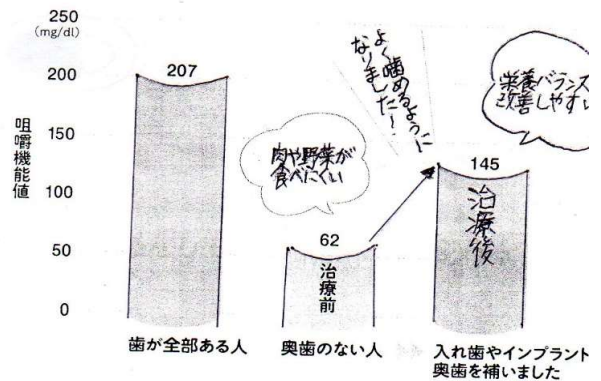 250
(mg/dl)
200
150
100
50
0
咀嚼機能値
207
62
145
治療前
治療後
肉や野菜が
食べにくい
よく噛めるように
なりました〜！
栄養バランス
改善しやすい
歯が全部ある人
奥歯のない人
入れ歯やインプラント
奥歯を補いました